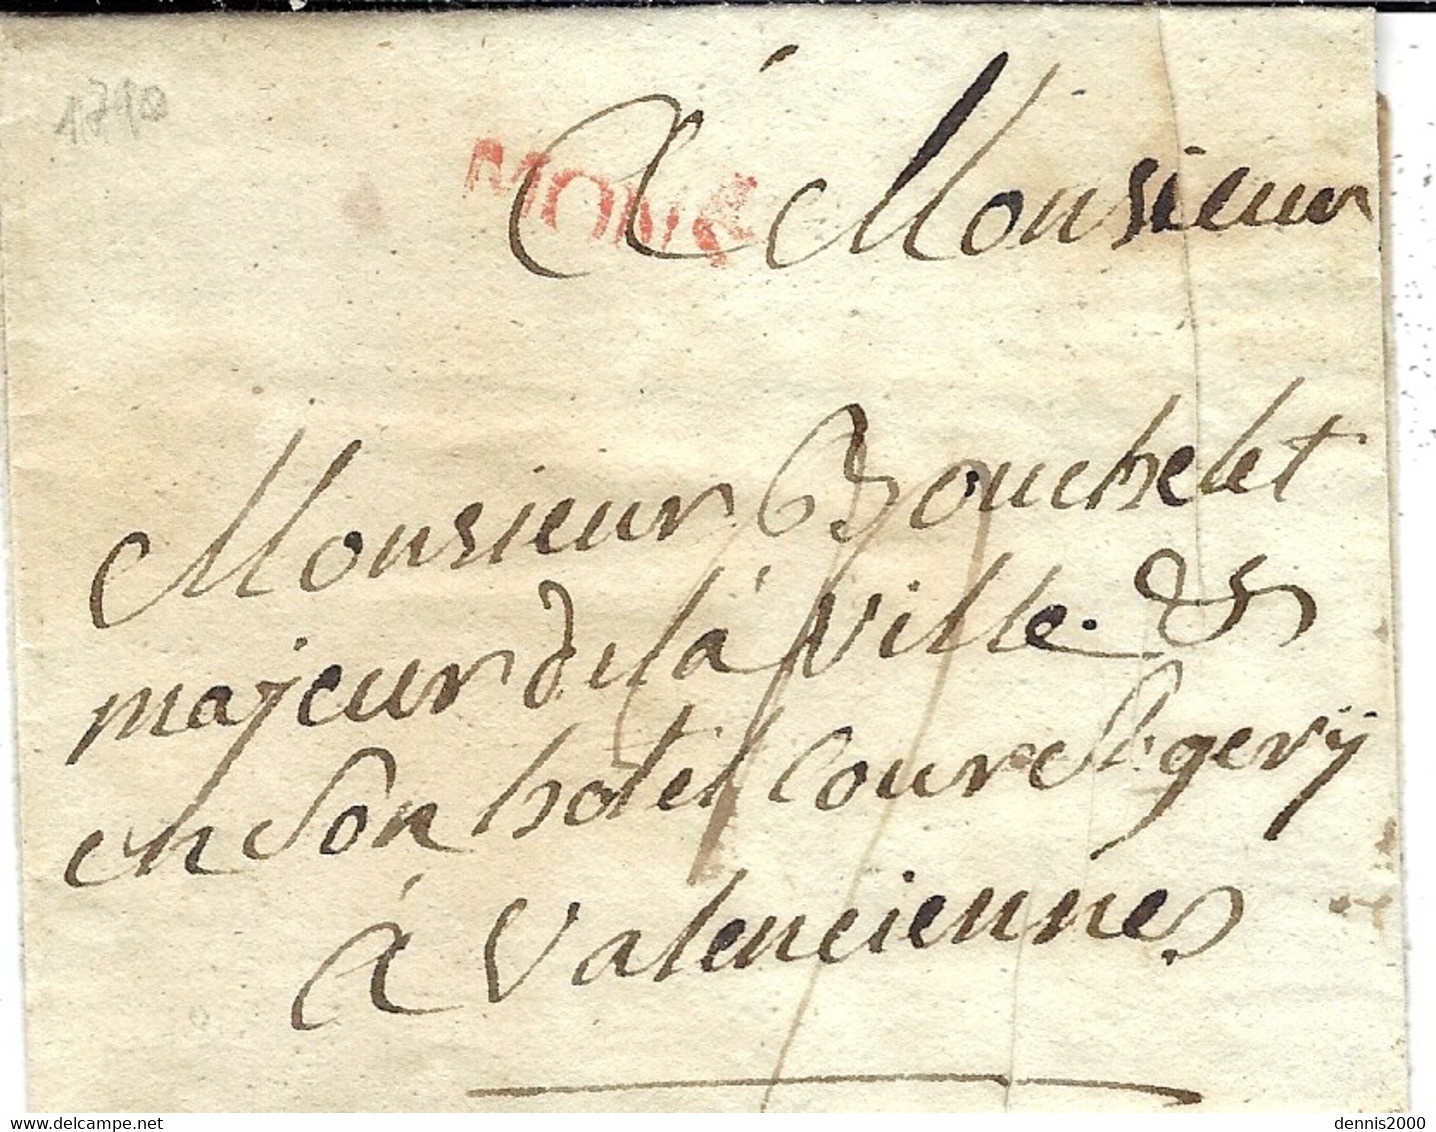 1790
MONS
A Monsieur
Monsieur Bouchelet
majeur de la ville. &
en son hotel cour St gery
à Valenciennes
dennis2000